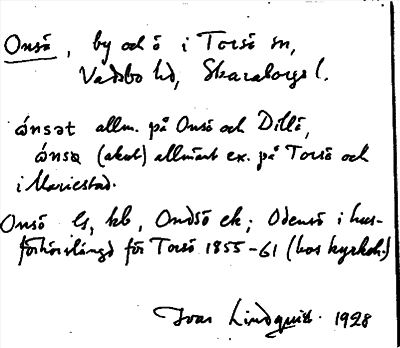 Onsö, by och ö i Torsö sn,
Vadsbo hd, Skaraborgs l.
ónsət allm. på Onsö och Dillö,
ónsα (akut) allmänt ex. på Torsö och
i Mariestad.
Onsö Gs, kb, Ondsö ek; Odensö i hus-
förhörslängd för Torsö 1855-61 (hos kyrkoh.)
Ivar Lindquist. 1928